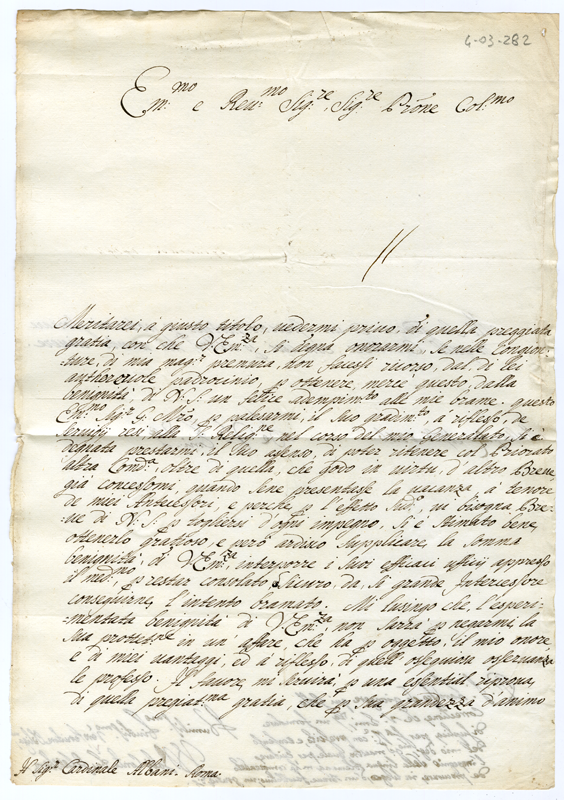 4-03-282
Em.mo e Reu.mo Sig.re, Sig.re Prône Col.mo
Meritarei, à giusto titolo, uedermi priuo, di quella preggiata
gratia, con che V Em.za, si degna onorarmi, se nelle congion-
ture, di mia mag.r premura, non facessi ricorso, dal di lei
authoreuole padrocinio, p ottenere, mercè questo, dalla
benignità, di N: S. un felice adempim.to alle mie brame. questo
Em.mo Sig.r G. Mro, p palesarmi, il suo gradim.to a riflesso, de
seruitij resi alla Relig.ne nel corso del mio Generalato, si è
degnato prestarmi, il suo assenso, di poter ritenere col Priorato
altra Comda, oltre di quella, che godo in uirtù, d'altro Breue
già concessomi, quando sene presentasse la uacanza à tenore
de miei Antecessori, e perche p l'effetto sud.o, ui bisogna Bre-
ue di N: S: p togliersi d'ogni impegno, si è stimato bene
ottenerlo gratioso, e però ardisco supplicare, la somma
benignità, di V Em.za interporre i suoi efficaci ufficij appresso
il med.mo, p restar consolato sicuro, da sì grande Intercessore
conseguirne, l'intento bramato. Mi lusingo che, l'esperi-
-mentata benignità di V Em.za, non sarrà p negarmi, la
sua protett.ne in un' affare, che hà p oggetto il mio onore,
e di miei uantaggi, ed à riflesso, di quell' ossequiosa osseruanza
le professo. Il fauore, mi seruirà p una essential riproua,
di quella pregiat.ma gratia, che p sua grandezza d'animo
Il Sig.r Cardinale Albani. Roma.